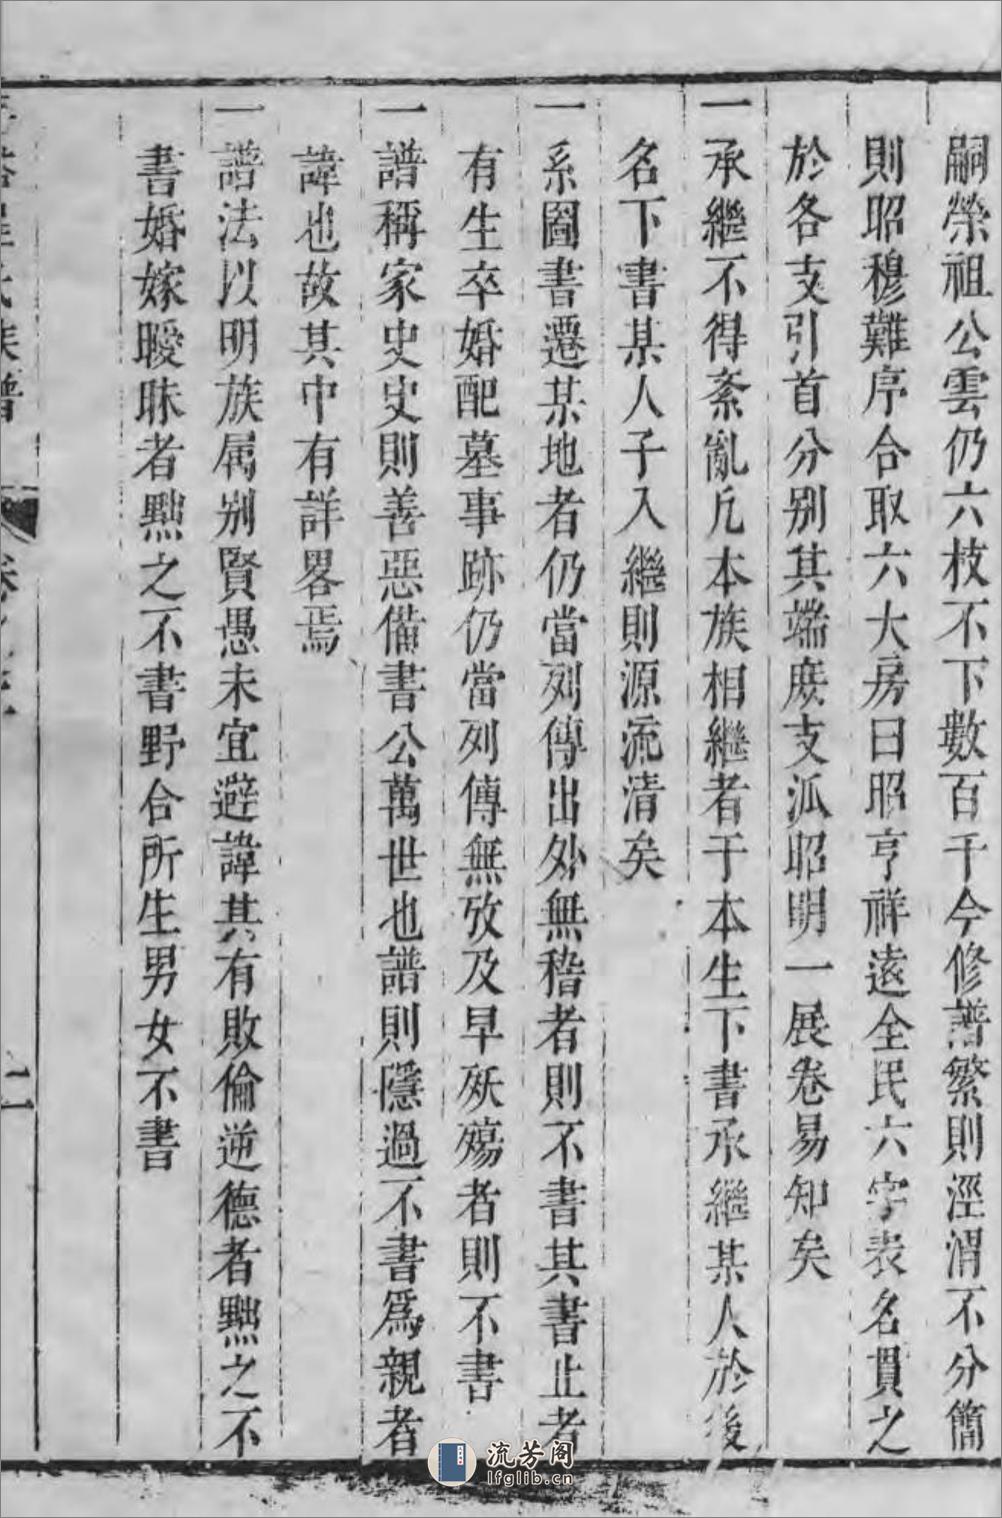 嗣榮祖公雲仍六枝不下數百千今修譜繁則涇渭不分簡
則昭穆難序合取六大房曰昭亨祥遠全民六字表名貫之
於各支引首分别其端庶支派昭明一展卷易知矣
一承繼不得紊亂凡本族相繼者于本生下書承繼某人於後
名下書某人子入繼則源流清矣
一系圖書遷某地者仍當列傳出外無稽者則不書其書止者
有生卒婚配墓事跡仍當列傳無攷及早殀殤者則不書
一譜稱家史史則善惡備書公萬世也譜則隱過不書爲親者
諱也故其中有詳畧焉
一譜法以明族属别賢愚未宜避諱其有敗倫逆德者黜之不
書婚嫁曖昧者黜之不書野合所生男女不書
氏族譜
十一
流芳阁
lfglib.cn